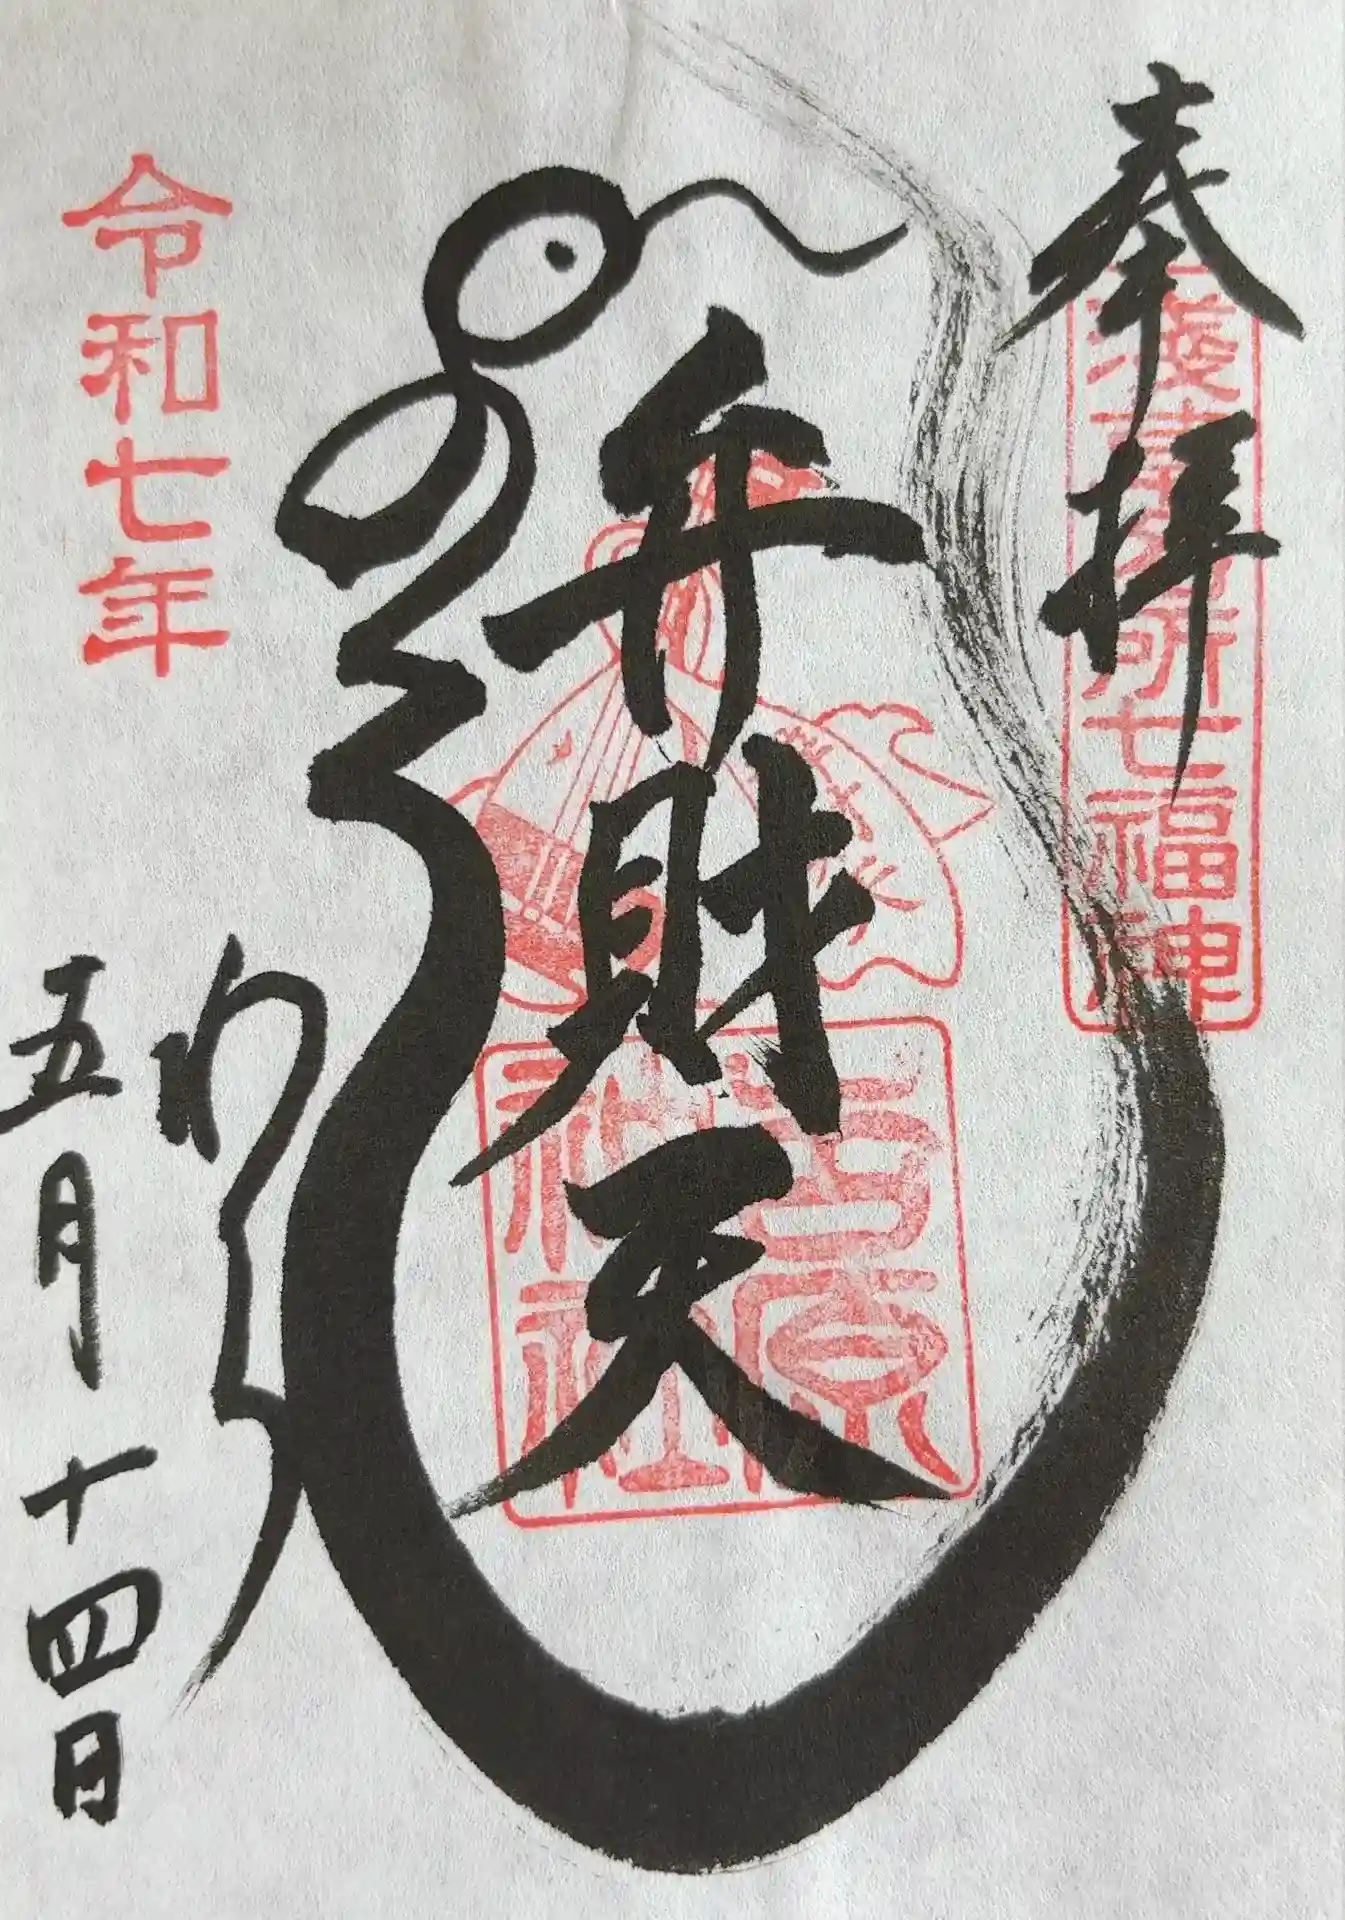 奉拝
浅草名所七福神
弁財天
吉原
神社
令和七年
五月十四日